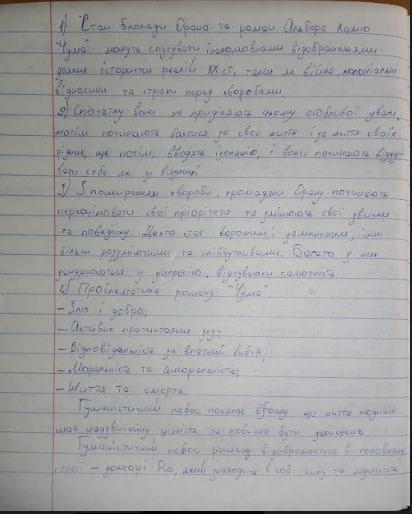 1) Стан блокади Орана та роман Альбера Камю
"Чума" можуть слугувати інакомовними відображеннями
деяких історичних реалій XX ст. таких як війна, колоніальні
відносини та страхи перед хворобами.
2) Спочатку вони не приділяють цьому особливої уваги,
потім починають боятися за своє життя і за життя своїх
рідних, ще потім, вводять ізоляцію, і вони починають відчу-
вати себе як у в'язниці
3) З поширенням хвороби, громадяни Орану починають
переоцінювати свої пріоритети та змінюють свої звички
та поведінку. Дехто стає ворожим і замкненим, інші
більш розуміючими та співчутливими. Багато з них
занурюються у депресію, відчуваючи самотність.
4) Проблематика роману "Чума"
– Зло і добро;
– Активне протистояння злу;
– Відповідальність за власний вибір;
– Моральність та аморальність;
– Життя та смерть.
Гуманістичний пафос полягає в тому, що життя людини
має надзвичайну цінність та повинно бути захищене
Гуманістичний пафос роману відображається в головному
герої – докторі Ріо, який знаходить в собі силу та мужність